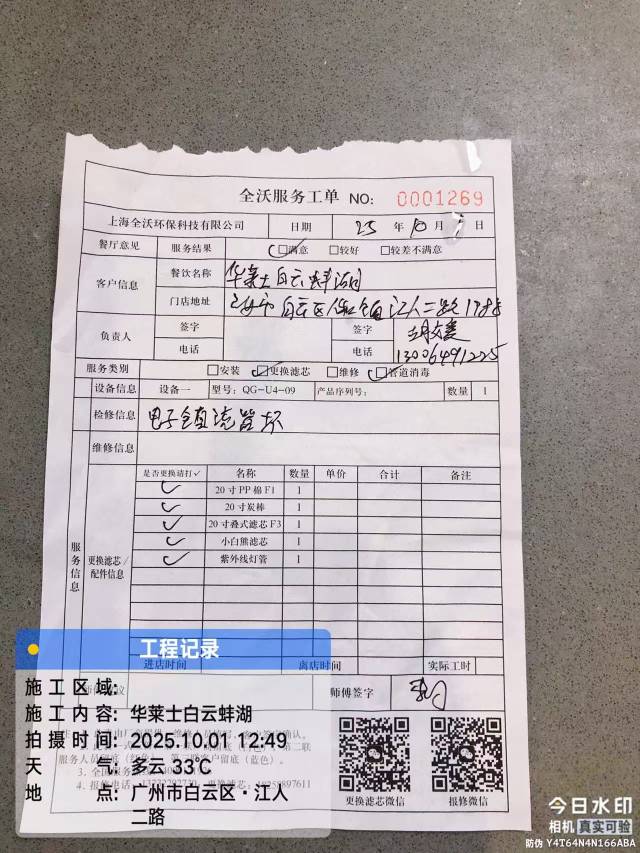 全沃服务工单 NO: 0001269
上海全沃环保科技有限公司 日期 25 年 10 月 1 日
餐厅意见 服务结果 ☑满意 □较好 □较差不满意
客户信息 餐饮名称 华莱士白云蚌湖
门店地址 白云区 江人二路
负责人 签字 签字
电话 电话 13006491225
服务类别 □安装 ☑更换滤芯 □维修 ☑管道消毒
设备信息 设备一 型号: QG-U4-09 产品序列号: 数量 1
检修信息 电子镇流器坏
维修信息
服务信息 更换滤芯/配件信息
是否更换请打✓ 名称 数量 单价 合计 备注
✓ 20寸PP棉F1 1
✓ 20寸炭棒 1
✓ 20寸叠式滤芯F3 1
✓ 小白熊滤芯 1
✓ 紫外线灯管 1
进店时间 离店时间 实际工时
师傅签字
更换滤芯微信 报修微信
工程记录
施工区域:
施工内容: 华莱士白云蚌湖
拍摄时间: 2025.10.01 12:49
天气: 多云 33℃
地点: 广州市白云区·江人
二路
今日水印
相机 真实可验
防伪 Y4T64N4N166ABA